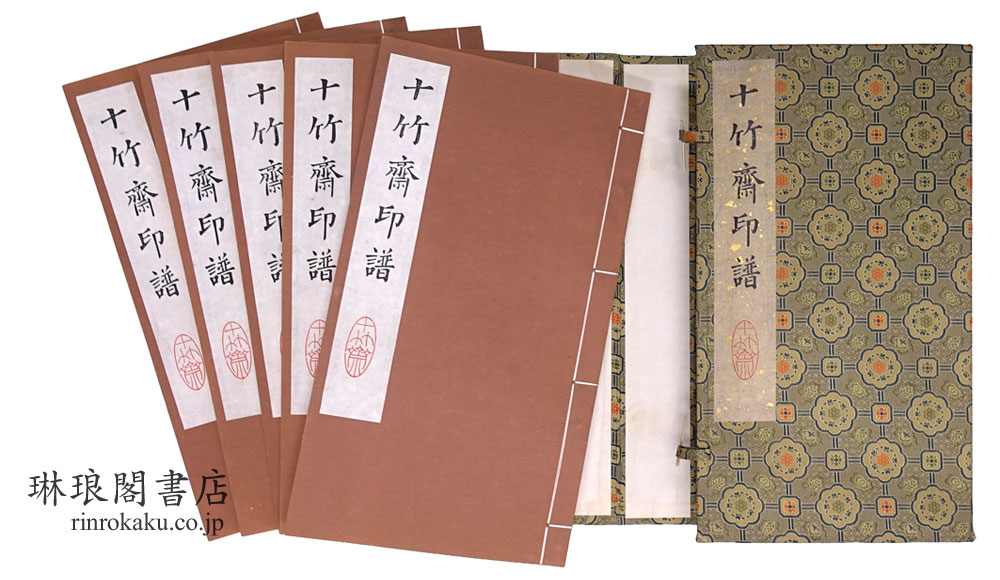 十竹齋印譜
十竹齋印譜
十竹齋印譜
十竹齋印譜
十竹齋印譜
十竹齋印譜
琳琅閣書店
rinrokaku.co.jp